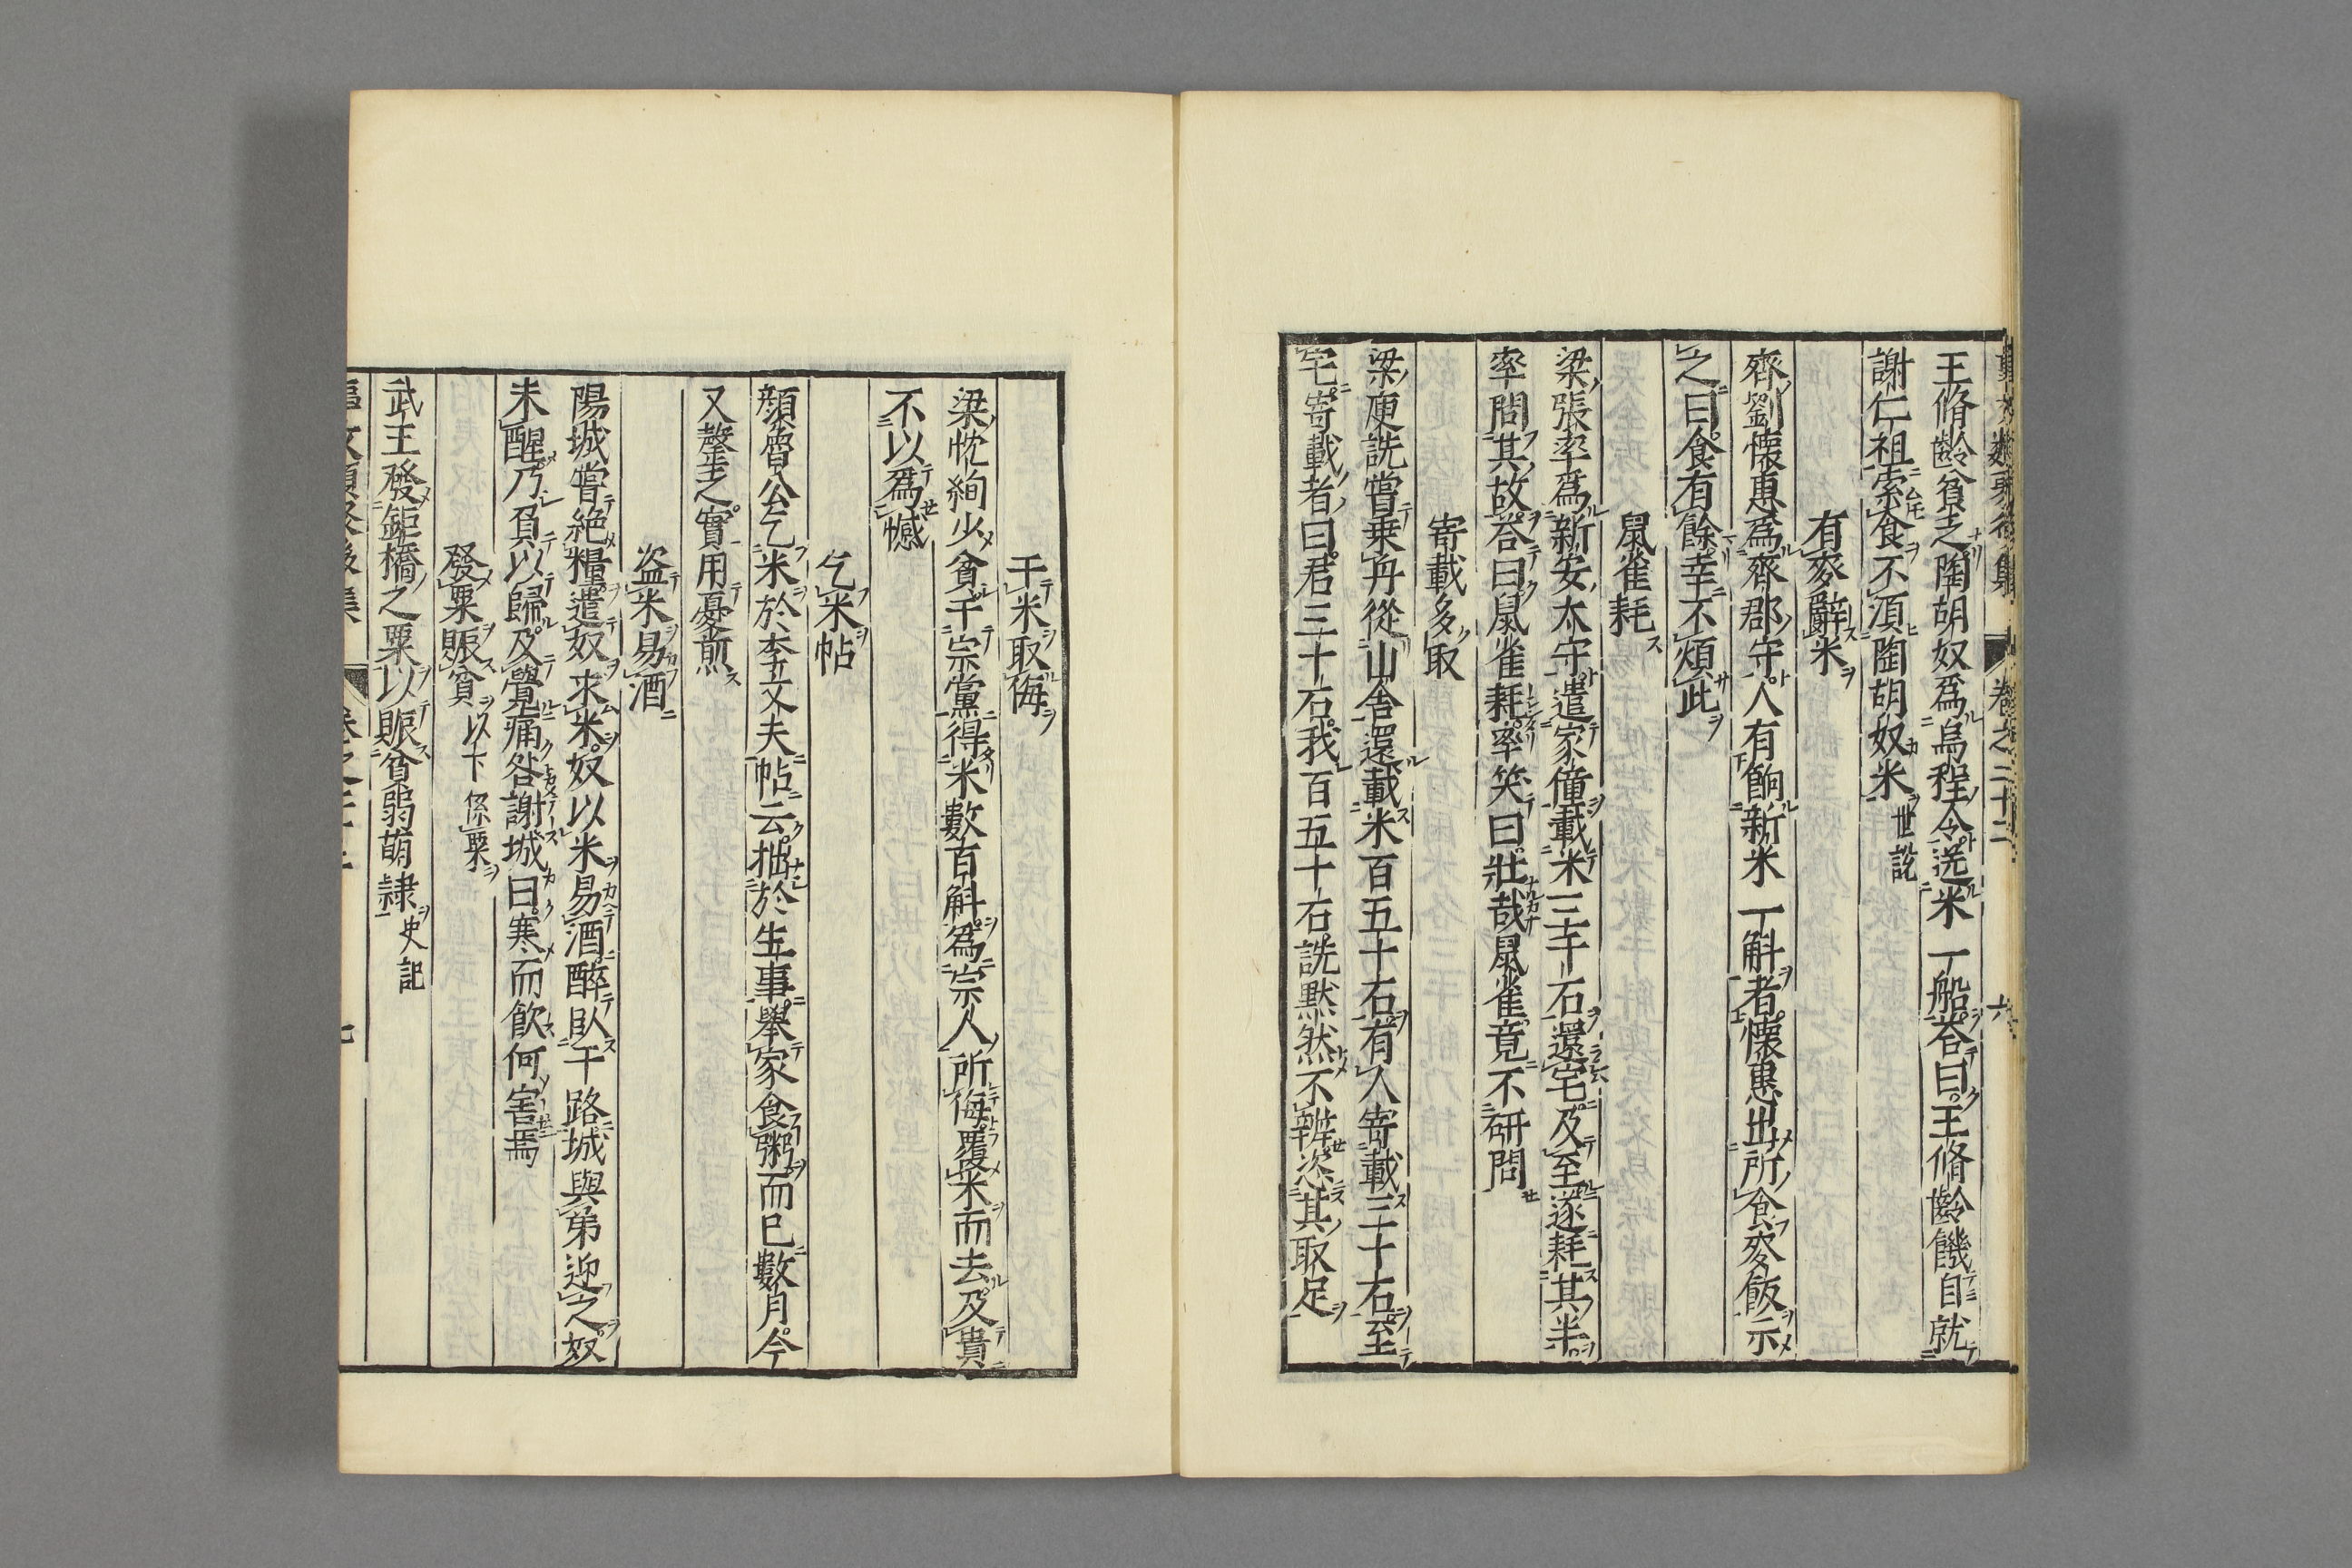 卷之二十二 六
王脩齡貧乏陶胡奴爲烏程令送米一船荅曰王脩齡饑自就
謝仁祖索食不湏陶胡奴米世說
有麥辭米
齊劉懷惠爲齊郡守人有餉新米一斛者懷惠出所食麥飯示
之曰食有餘幸不煩此
鼠雀耗
梁張率爲新安太守遣家僮載米三千石還宅及至遂耗其半
率問其故荅曰鼠雀耗率笑曰壯哉鼠雀竟不研問
寄載多取
梁庾詵嘗乗舟從山舎還載米百五十石有人寄載三十石至
宅寄載者曰君三十石我百五十石詵黙然不辨恣其取足
干米取侮
梁忱絢少貧干宗黨得米數百斛爲宗人所侮覆米而去及貴
不以爲憾
乞米帖
顔魯公乞米於李五文夫帖云拙於生事舉家食粥而已數月今
又罄乏實用憂煎
盗米易酒
陽城嘗絶糧遣奴求米奴以米易酒醉臥于路城與弟迎之奴
未醒乃負以歸及覺痛咎謝城曰寒而飮何害焉
發粟賑貧以下係粟
武王發鉅橋之粟以賑貧弱萌隷史記